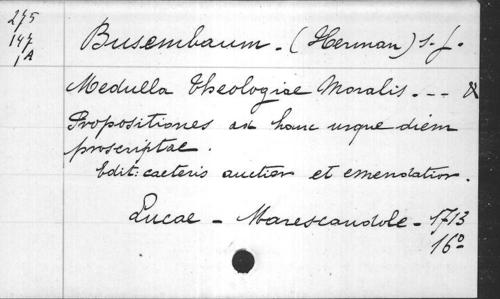 275
147
1A
Busembaum. (Herman) S. J.
Medulla Theologiae Moralis. --- &
Propositiones ad hanc usque diem
proscriptae.
Edit: caeteris auctior et emendatior.
Lucae - Marescandole - 1713
16º